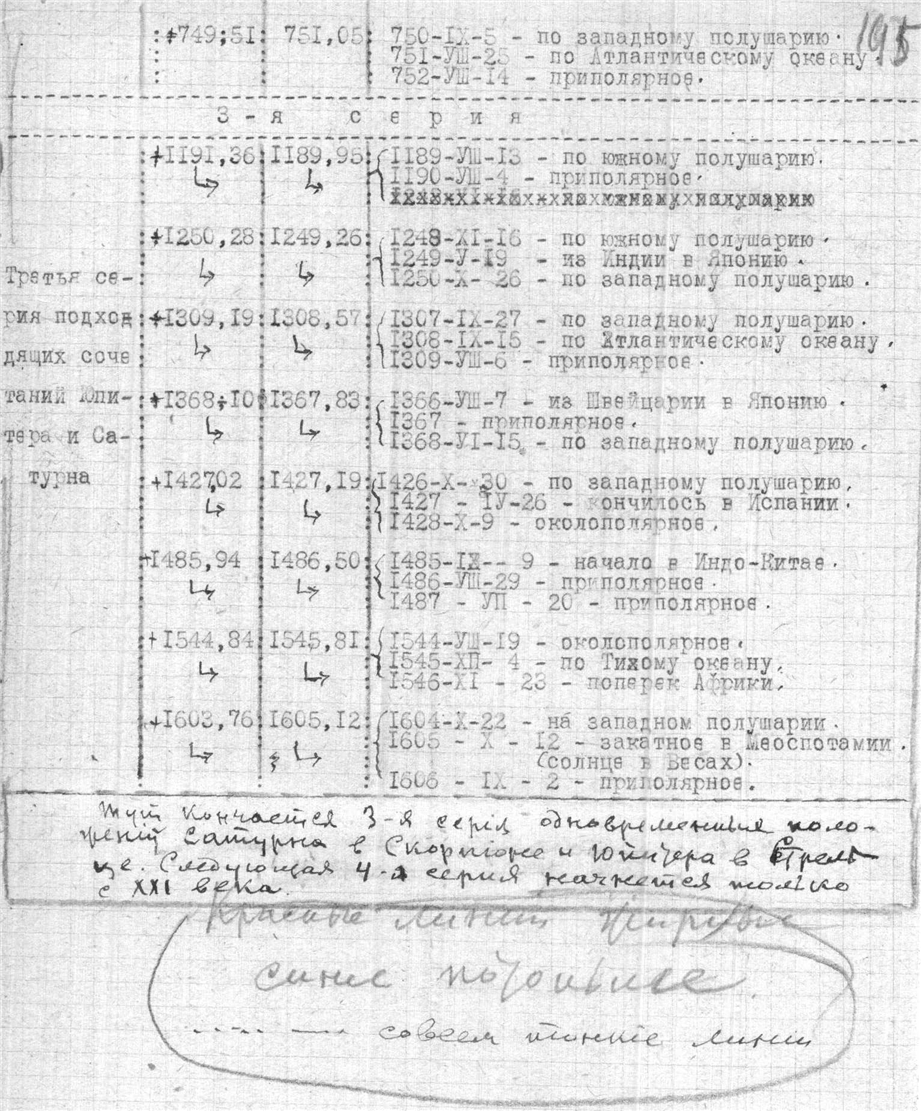 195
+749,51 751,05 750-IX-5 - по западному полушарию.
751-УШ-25 - по Атлантическому океану.
752-УШ-14 - приполярное.
3-я серия
+1191,36 1189,95 1189-УШ-13 - по южному полушарию.
1190-УШ-4 - приполярное.
+1250,28 1249,26 1248-XI-16 - по южному полушарию.
1249-У-19 - из Индии в Японию.
Третья се- 1250-X- 26 - по западному полушарию.
рия подход +1309,19 1308,57 1307-IX-27 - по западному полушарию.
1308-IX-15 - по Атлантическому океану.
дящих соче 1309-УШ-6 - приполярное.
таний Юпи- +1368,10 1367,83 1366-УШ-7 - из Швейцарии в Японию.
1367 - приполярное.
тера и Са- 1368-УI-15 - по западному полушарию.
турна +1427,02 1427,19 1426-X- 30 - по западному полушарию.
1427 - IУ-26 - кончилось в Испании.
1428-X-9 - околополярное.
+1485,94 1486,50 1485-IX-- 9 - начало в Индо-Китае.
1486-УШ-29 - приполярное.
1487 - УП - 20 - приполярное.
+1544,84 1545,81 1544-УШ-19 - околополярное.
1545-ХП- 4 - по Тихому океану.
1546-XI - 23 - поперек Африки.
+1603,76 1605,12 1604-X-22 - на западном полушарии.
1605 - X - 12 - закатное в Меоспотамии.
(солнце в Весах).
1606 - IX - 2 - приполярное.
Тут кончается 3-я серия одновременных поло-
жений Сатурна в Скорпионе и Юпитера в Стрель-
це. Следующая 4-я серия начнется только
с XXI века.
Красные линии жирные
синие потоньше
совсем тонкие линии